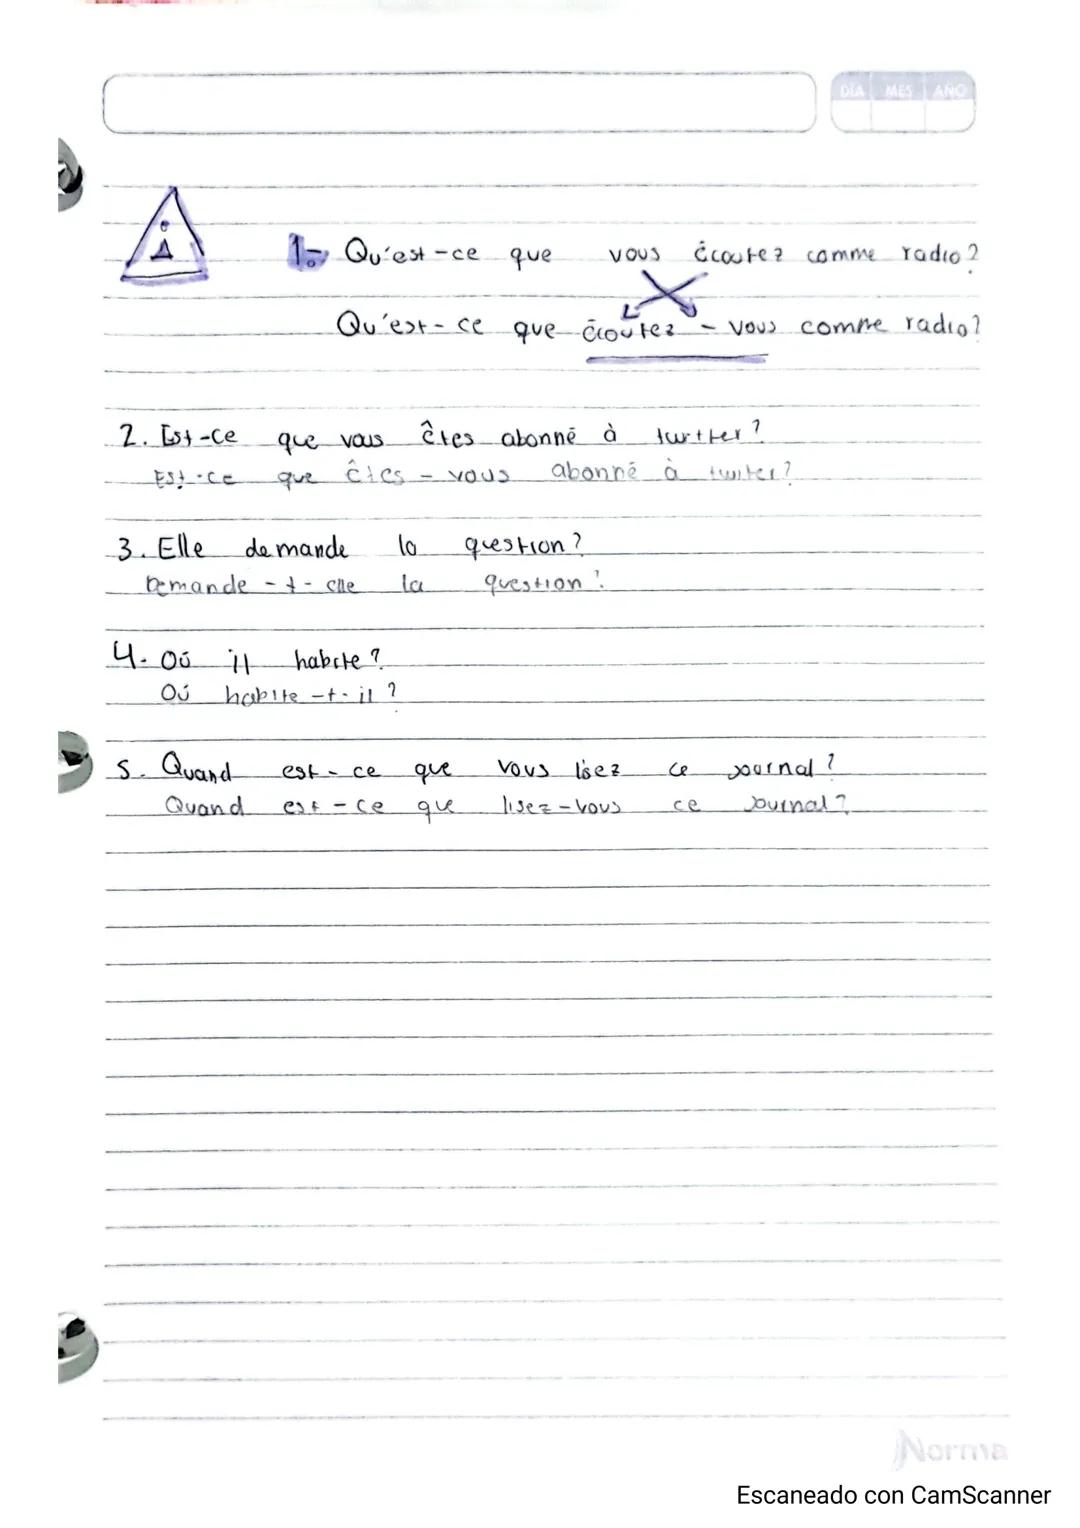 DÍA MES AÑO
1. Qu'est-ce que vous écoutez comme radio?
Qu'est-ce que écoutez - vous comme radio?
2. Est-ce que vous êtes abonné à twitter?
Est-ce que êtes - vous abonné à twiter?
3. Elle demande la question?
Demande -t- elle la question?
4. Oú il habite?
Oú habite -t- il?
5. Quand est-ce que vous lisez ce journal?
Quand est-ce que lisez-vous ce journal?
Norma
Escaneado con CamScanner